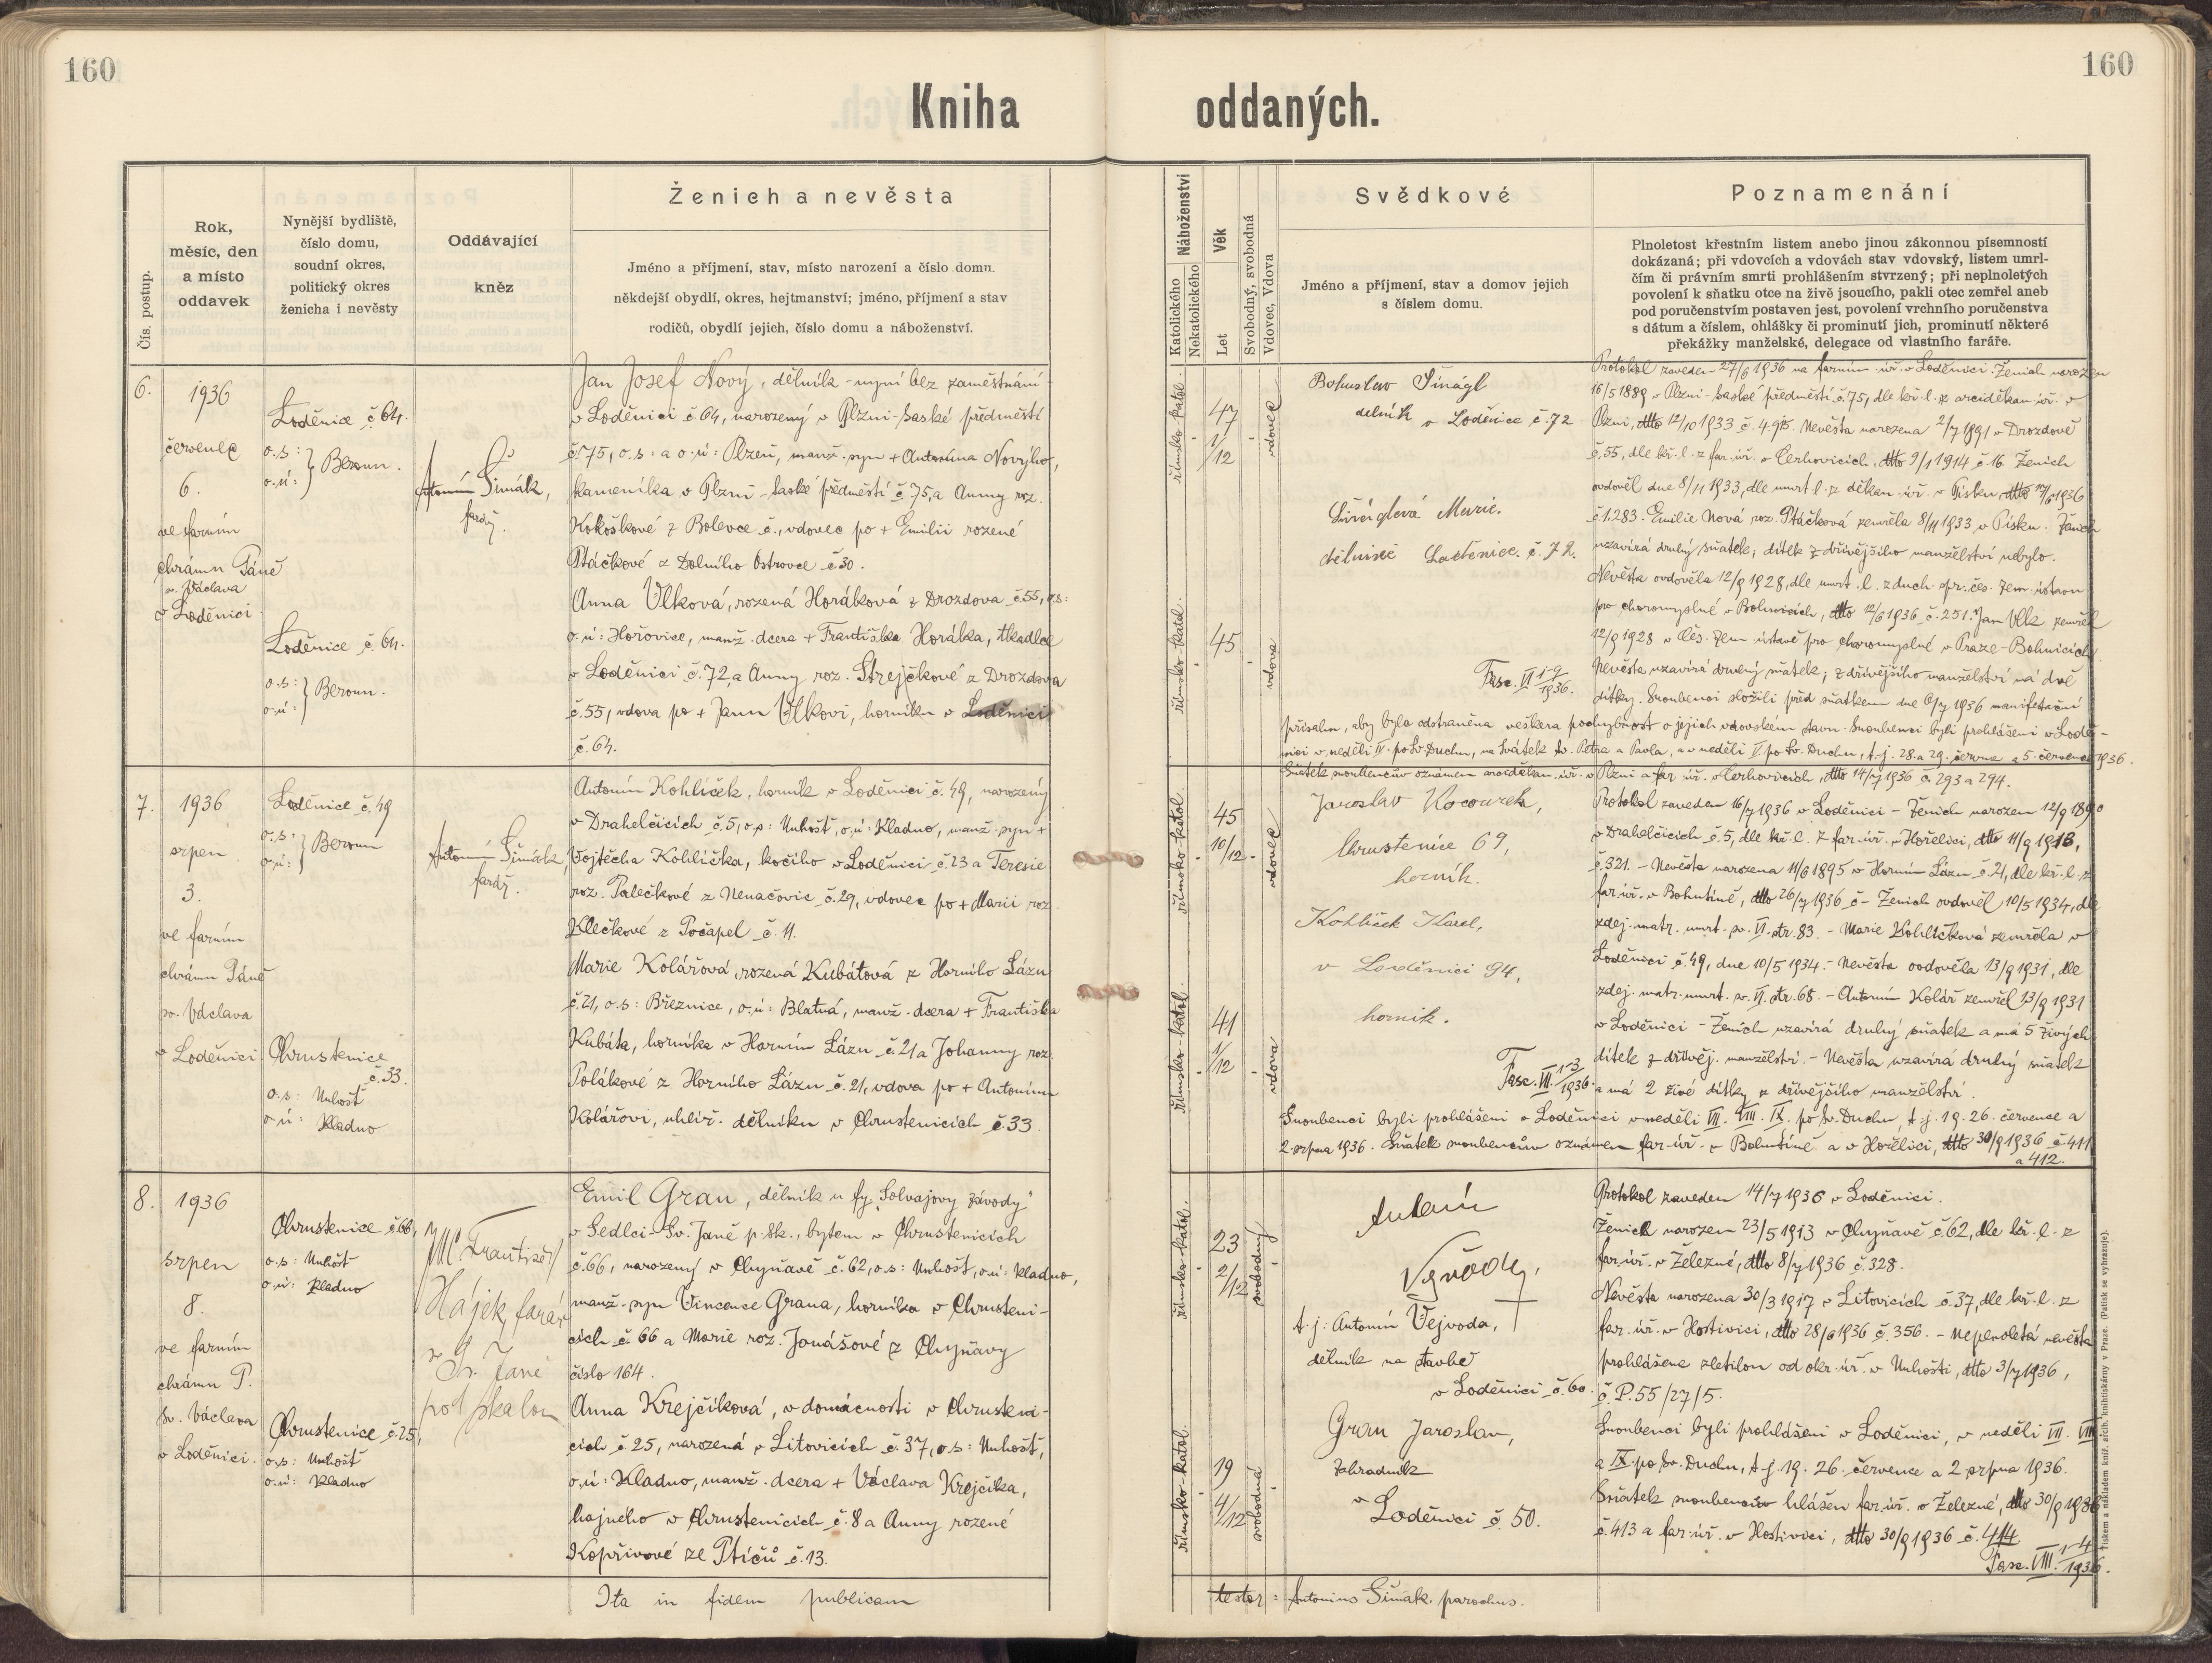 160
160
Kniha oddaných.
Čís. postup.
Rok,
měsíc, den
a místo
oddavek
Nynější bydliště,
číslo domu,
soudní okres,
politický okres
ženicha i nevěsty
Oddávající
kněz
Ženich a nevěsta
Jméno a příjmení, stav, místo narození a číslo domu.
někdejší obydlí, okres, hejtmanství; jméno, příjmení a stav
rodičů, obydlí jejich, číslo domu a náboženství.
Náboženství
Katolického
Nekatolického
Věk
Let
Svobodný, svobodná
Vdovec, Vdova
Svědkové
Jméno a příjmení, stav a domov jejich
s číslem domu.
Poznamenání
Plnoletost křestním listem anebo jinou zákonnou písemností
dokázaná; při vdovcích a vdovách stav vdovský, listem umrl-
čím či právním smrti prohlášením stvrzený; při neplnoletých
povolení k sňatku otce na živě jsoucího, pakli otec zemřel aneb
pod poručenstvím postaven jest, povolení vrchního poručenstva
s dátum a číslem, ohlášky či prominutí jich, prominutí některé
překážky manželské, delegace od vlastního faráře.
6.
1936
červenec
6.
ve farním
chrámu Páně
sv. Václava
v Loděnici
Loděnice č. 64.
o.s:
o.ú: } Beroun.
Loděnice č. 64.
o.s:
o.ú: } Beroun.
Antonín Šimák,
farář.
Jan Josef Nový, dělník - nyní bez zaměstnání -
v Loděnici č. 64, narozený v Plzni-Saské předměstí
č. 75, o.s: a o.ú: Plzeň, manž. syn + Antonína Nového,
kameníka v Plzni-Saské předměstí č. 75, a Anny roz.
Kokoškové z Bolevce č., vdovec po + Emilii rozené
Ptáčkové z Dolního Ostrovce č. 30.
Anna Vlková, rozená Horáková z Drozdova č. 55, o.s:
o.ú: Hořovice, manž. dcera + Františka Horáka, tkadlce
v Loděnici č. 72, a Anny roz. Strejčkové z Drozdova
č. 55, vdova po + Janu Vlkovi, horníku v Loděnici
č. 64.
římsko-katol.
47
1/12
vdovec
římsko-katol.
45
vdova
Bohuslav Šinágl
dělník v Loděnice č. 72
Šináglová Marie.
dělnice Loděnice. č. 72.
Fasc. VI 1-9/1936.
Protokol zaveden 27/6 1936 ve farním úř. v Loděnici. Ženich narozen
16/5 1889 v Plzni-Saské předměstí č. 75, dle kř. l. z arciděkan. úř. v
Plzni, dtto 12/10 1933 č. 4.915. Nevěsta narozena 2/7 1891 v Drozdově
č. 55, dle kř. l. z far. úř. v Cerhovicích, dtto 9/1 1914 č. 16. Ženich
ovdověl dne 8/11 1933, dle umrt. l. z děkan. úř. v Písku, dtto 1936
č. 1.283. Emilie Nová roz. Ptáčková zemřela 8/11 1933 v Písku. Ženich
uzavírá druhý sňatek, dítek z dřívějšího manželství nebylo.
Nevěsta ovdověla 12/9 1928, dle umrt. l. z duch. spr. čes. zem. ústavu
pro choromyslné v Bohnicích, dtto 12/6 1936 č. 251. Jan Vlk zemřel
12/9 1928 v čes. zem. ústavě pro choromyslné v Praze-Bohnicích.
Nevěsta uzavírá druhý sňatek; z dřívějšího manželství má dvě
dítky. Snoubenci složili před sňatkem dne 6/7 1936 manifestační
přísahu, aby byla odstraněna veškera pochybnost o jejich vdovském stavu. Snoubenci byli prohlášeni v Lodě-
nici v neděli IV. po Sv. Duchu, na svátek sv. Petra a Pavla, a v neděli V. po Sv. Duchu, t.j. 28. a 29. června a 5. července 1936.
Sňatek snoubencův oznámen arciděkan. úř. v Plzni a far. úř. v Cerhovicích, dtto 14/7 1936 č. 293 a 294.
7.
1936
srpen
3.
ve farním
chrámu Páně
sv. Václava
v Loděnici
Loděnice č. 49
o.s:
o.ú: } Beroun
Chrustenice
č. 33.
o.s: Unhošť
o.ú: Kladno
Antonín Šimák,
farář.
Antonín Kohlíček, horník v Loděnici č. 49, narozený
v Drahelčicích č. 5, o.s: Unhošť, o.ú: Kladno, manž. syn +
Vojtěcha Kohlíčka, kočího v Loděnici č. 23 a Teresie
roz. Palečkové z Nenačovic č. 29, vdovec po + Marii roz.
Klečkové z Počapel č. 11.
Marie Kolářová, rozená Kubátová z Horního Lázu
č. 21, o.s: Březnice, o.ú: Blatná, manž. dcera + Františka
Kubáta, horníka v Horním Lázu č. 21 a Johanny roz.
Polákové z Horního Lázu č. 21, vdova po + Antonínu
Kolářovi, uhlíř. dělníku v Chrustenicích č. 33.
římsko-katol.
45
10/12
vdovec
římsko-katol.
41
1/12
vdova
Jaroslav Kocourek,
Chrustenice 69,
horník.
Kohlíček Karel,
v Loděnici 94,
horník.
Fasc. VII. 1-3/1936.
Protokol zaveden 16/7 1936 v Loděnici - Ženich narozen 12/9 1890
v Drahelčicích č. 5, dle kř. l. z far. úř. v Hořelici, dtto 11/9 1913,
č. 321. - Nevěsta narozena 11/6 1895 v Horním Lázu č. 21, dle kř. l. z
far. úř. v Bohutíně, dtto 26/7 1936 č - Ženich ovdověl 10/5 1934, dle
zdej. matr. umrt. sv. VI. str. 83. - Marie Kohlíčková zemřela v
Loděnici č. 49, dne 10/5 1934. - Nevěsta ovdověla 13/9 1931, dle
zdej. matr. umrt. sv. VI. str. 68. - Antonín Kolář zemřel 13/9 1931
v Loděnici - Ženich uzavírá druhý sňatek a má 5 živých
dítek z dřívěj. manželství. - Nevěsta uzavírá druhý sňatek
a má 2 živé dítky z dřívějšího manželství.
Snoubenci byli prohlášeni v Loděnici v neděli VII. VIII. IX. po Sv. Duchu, t.j. 19. 26. července a
2. srpna 1936. Sňatek snoubencův oznámen far. úř. v Bohutíně a v Hořelici, dtto 30/9 1936 č. 411
a 412.
8.
1936
srpen
8.
ve farním
chrámu P.
sv. Václava
v Loděnici.
Chrustenice č. 66,
o.s: Unhošť
o.ú: Kladno
Chrustenice č. 25,
o.s: Unhošť
o.ú: Kladno
František
Hájek, farář
v Sv. Janě
pod skalou
Emil Grau, dělník u fy „Solvajovy závody"
v Sedlci-Sv. Janě p. Sk., bytem v Chrustenicích
č. 66, narozený v Chyňavě č. 62, o.s: Unhošť, o.ú: Kladno,
manž. syn Vincence Graua, horníka v Chrusteni-
cích č. 66 a Marie roz. Jonášové z Chyňavy
číslo 164.
Anna Krejčíková, v domácnosti v Chrusteni-
cích č. 25, narozená v Litovicích č. 37, o.s: Unhošť,
o.ú: Kladno, manž. dcera + Václava Krejčíka,
hajného v Chrustenicích č. 8 a Anny rozené
Kopřivové ze Ptíčů č. 13.
římsko-katol.
23
2/12
svobodný
římsko-katol.
19
4/12
svobodná
Antonín
t.j: Antonín Vejvoda,
dělník na stavbě
v Loděnici č. 60.
Grau Jaroslav,
zahradník
v Loděnici č. 50.
Protokol zaveden 14/7 1936 v Loděnici.
Ženich narozen 23/5 1913 v Chyňavě č. 62, dle kř. l. z
far. úř. v Železné, dtto 8/7 1936 č. 328.
Nevěsta narozena 30/3 1917 v Litovicích č. 37, dle kř. l. z
far. úř. v Hostivici, dtto 28/6 1936 č. 356. - Neplnoletá nevěsta
prohlášena zletilou od okr. úř. v Unhošti, dtto 3/7 1936,
č. P. 55/27/5.
Snoubenci byli prohlášeni v Loděnici, v neděli VII. VIII.
a IX. po Sv. Duchu, t.j. 19. 26. července a 2 srpna 1936.
Sňatek snoubencův hlášen far. úř. v Železné, dtto 30/9 1936
č. 413 a far. úř. v Hostivici, dtto 30/9 1936 č. 414
Fasc. VIII. 1-4/1936.
Ita in fidem publicam
testor: Antonius Šimák parochus.
Tiskem a nákladem kníž. arcib. knihtiskárny v Praze. (Patisk se vyhrazuje).